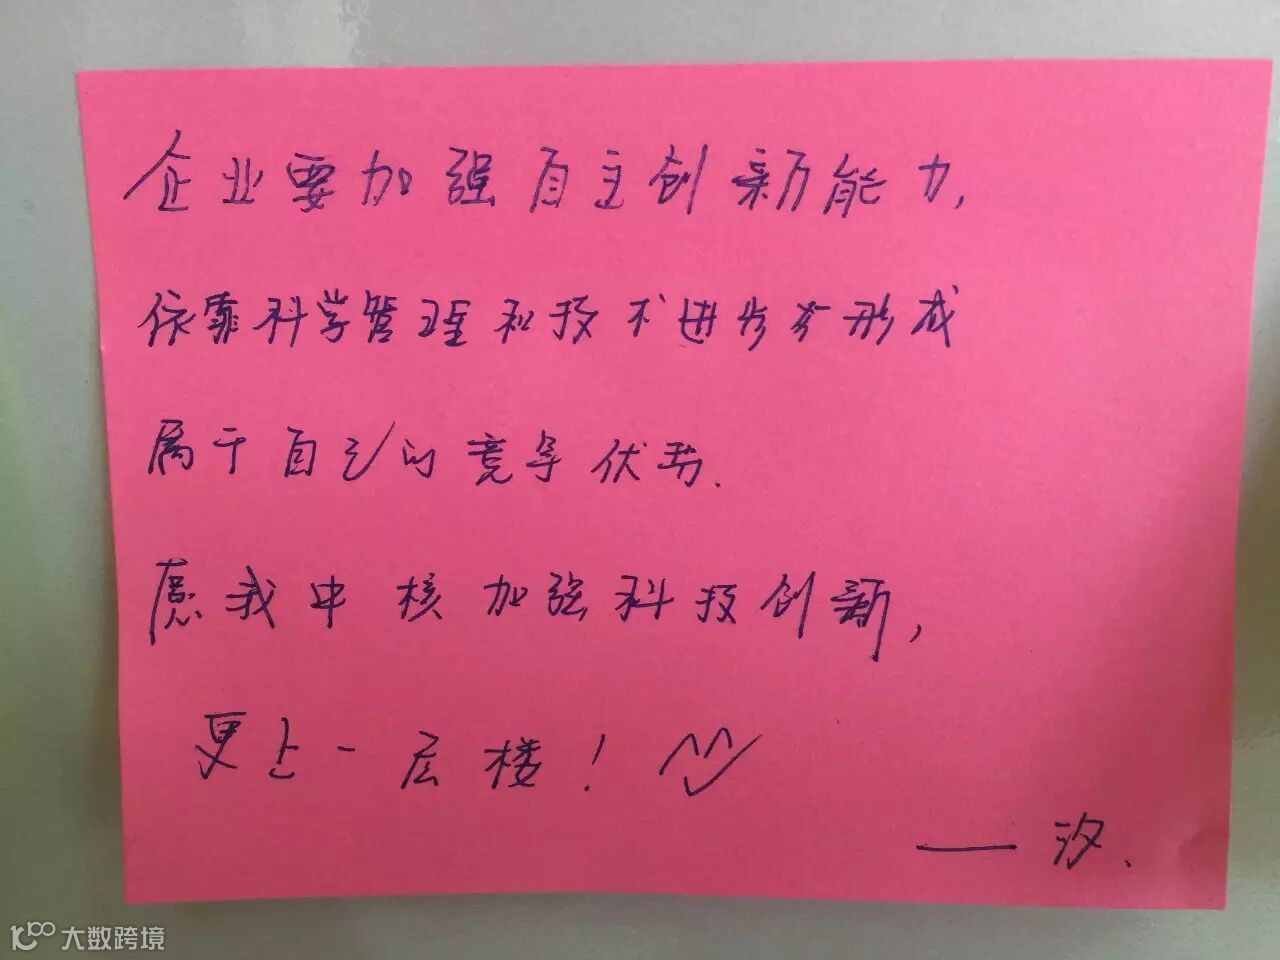 企业要加强自主创新能力,
依靠科学管理和技术进步才形成
属于自己的竞争优势.
愿我中核加强科技创新,
更上一层楼!
——汐.
大数跨境